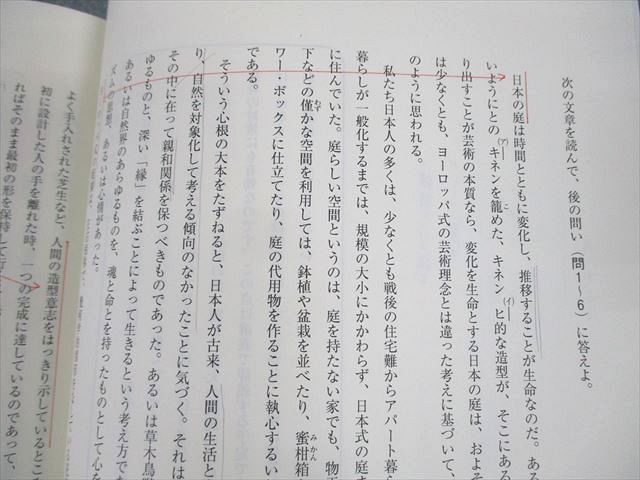 次の文章を読んで、後の問い（問１～６）に答えよ。
日本の庭は時間とともに変化し、推移することが生命なのだ。ある
いようにとの(ア)キネンを籠こめた、キネン(イ)ヒ的な造型が、そこにある
り出すことが芸術の本質なら、変化を生命とする日本の庭は、およそ
は少なくとも、ヨーロッパ式の芸術理念とは違った考えに基づいて、
のように思われる。
私たち日本人の多くは、少なくとも戦後の住宅難からアパート暮ら
暮らしが一般化するまでは、規模の大小にかかわらず、日本式の庭
に住んでいた。庭らしい空間というのは、庭を持たない家でも、物干
下などの僅わずかな空間を利用しては、鉢植や盆栽を並べたり、蜜柑みかん箱
ワー・ボックスに仕立てたり、庭の代用物を作ることに執心するい
である。
そういう心根の大本をたずねると、日本人が古来、人間の生活と
り、自然を対象化して考える傾向のなかったことに気づく。それは
その中に在って親和関係を保つべきものであった。あるいは草木鳥
ゆるものと、深い「縁」を結ぶことによって生きるという考え方で
あるいは自然界のあらゆるものを、魂と命とを持ったものとして心を
あるいは心情があった。
よく手入れされた芝生など、人間の造型意志をはっきり示しているとこ
初に設計した人の手を離れた時、一つの完成に達しているのであって、
ればそのまま最初の形を保持して行